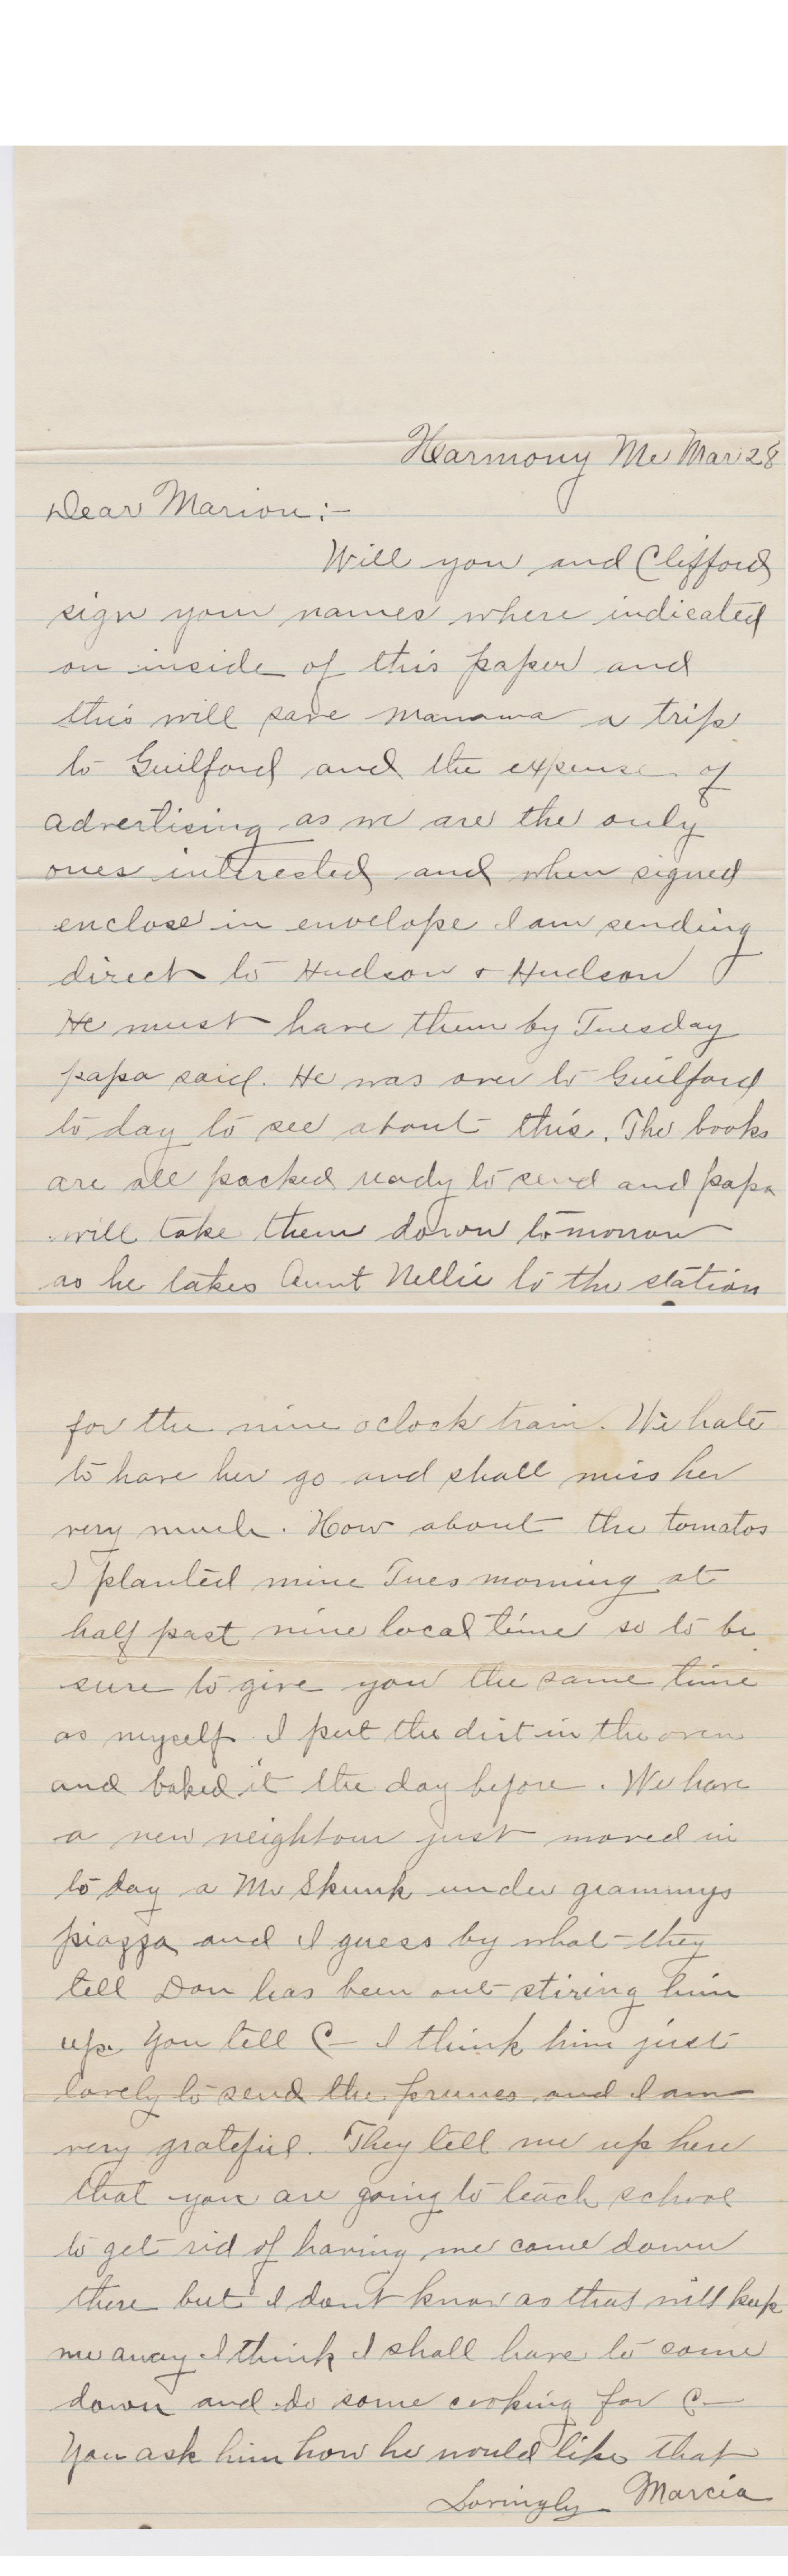 Harmony Me Mar 28
Dear Marion:-
Will you and Clifford
sign your names where indicated
on inside of this paper and
this will save mamma a trip
to Guilford and the expense of
advertising as we are the only
ones interested and when signed
enclose in envelope I am sending
direct to Hudson & Hudson
He must have them by Tuesday
papa said. He was over to Guilford
to day to see about this. The books
are all packed ready to send and papa
will take them down tomorrow
as he takes Aunt Nellie to the station
for the nine oclock train. We hate
to have her go and shall miss her
very much. How about the tomatos
I planted mine Tues morning at
half past nine local time so to be
sure to give you the same time
as myself I put the dirt in the oven
and baked it the day before. We have
a new neighbour just moved in
to day a Mr Skunk under grammys
piazza and I guess by what they
tell Don has been out stiring him
up. You tell C- I think him just
lovely to send the prunes and I am
very grateful. They tell me up here
that you are going to teach school
to get rid of having me come down
there but I dont know as that will keep
me away I think I shall have to come
down and do some cooking for C-
You ask him how he would like that
Lovingly Marcia